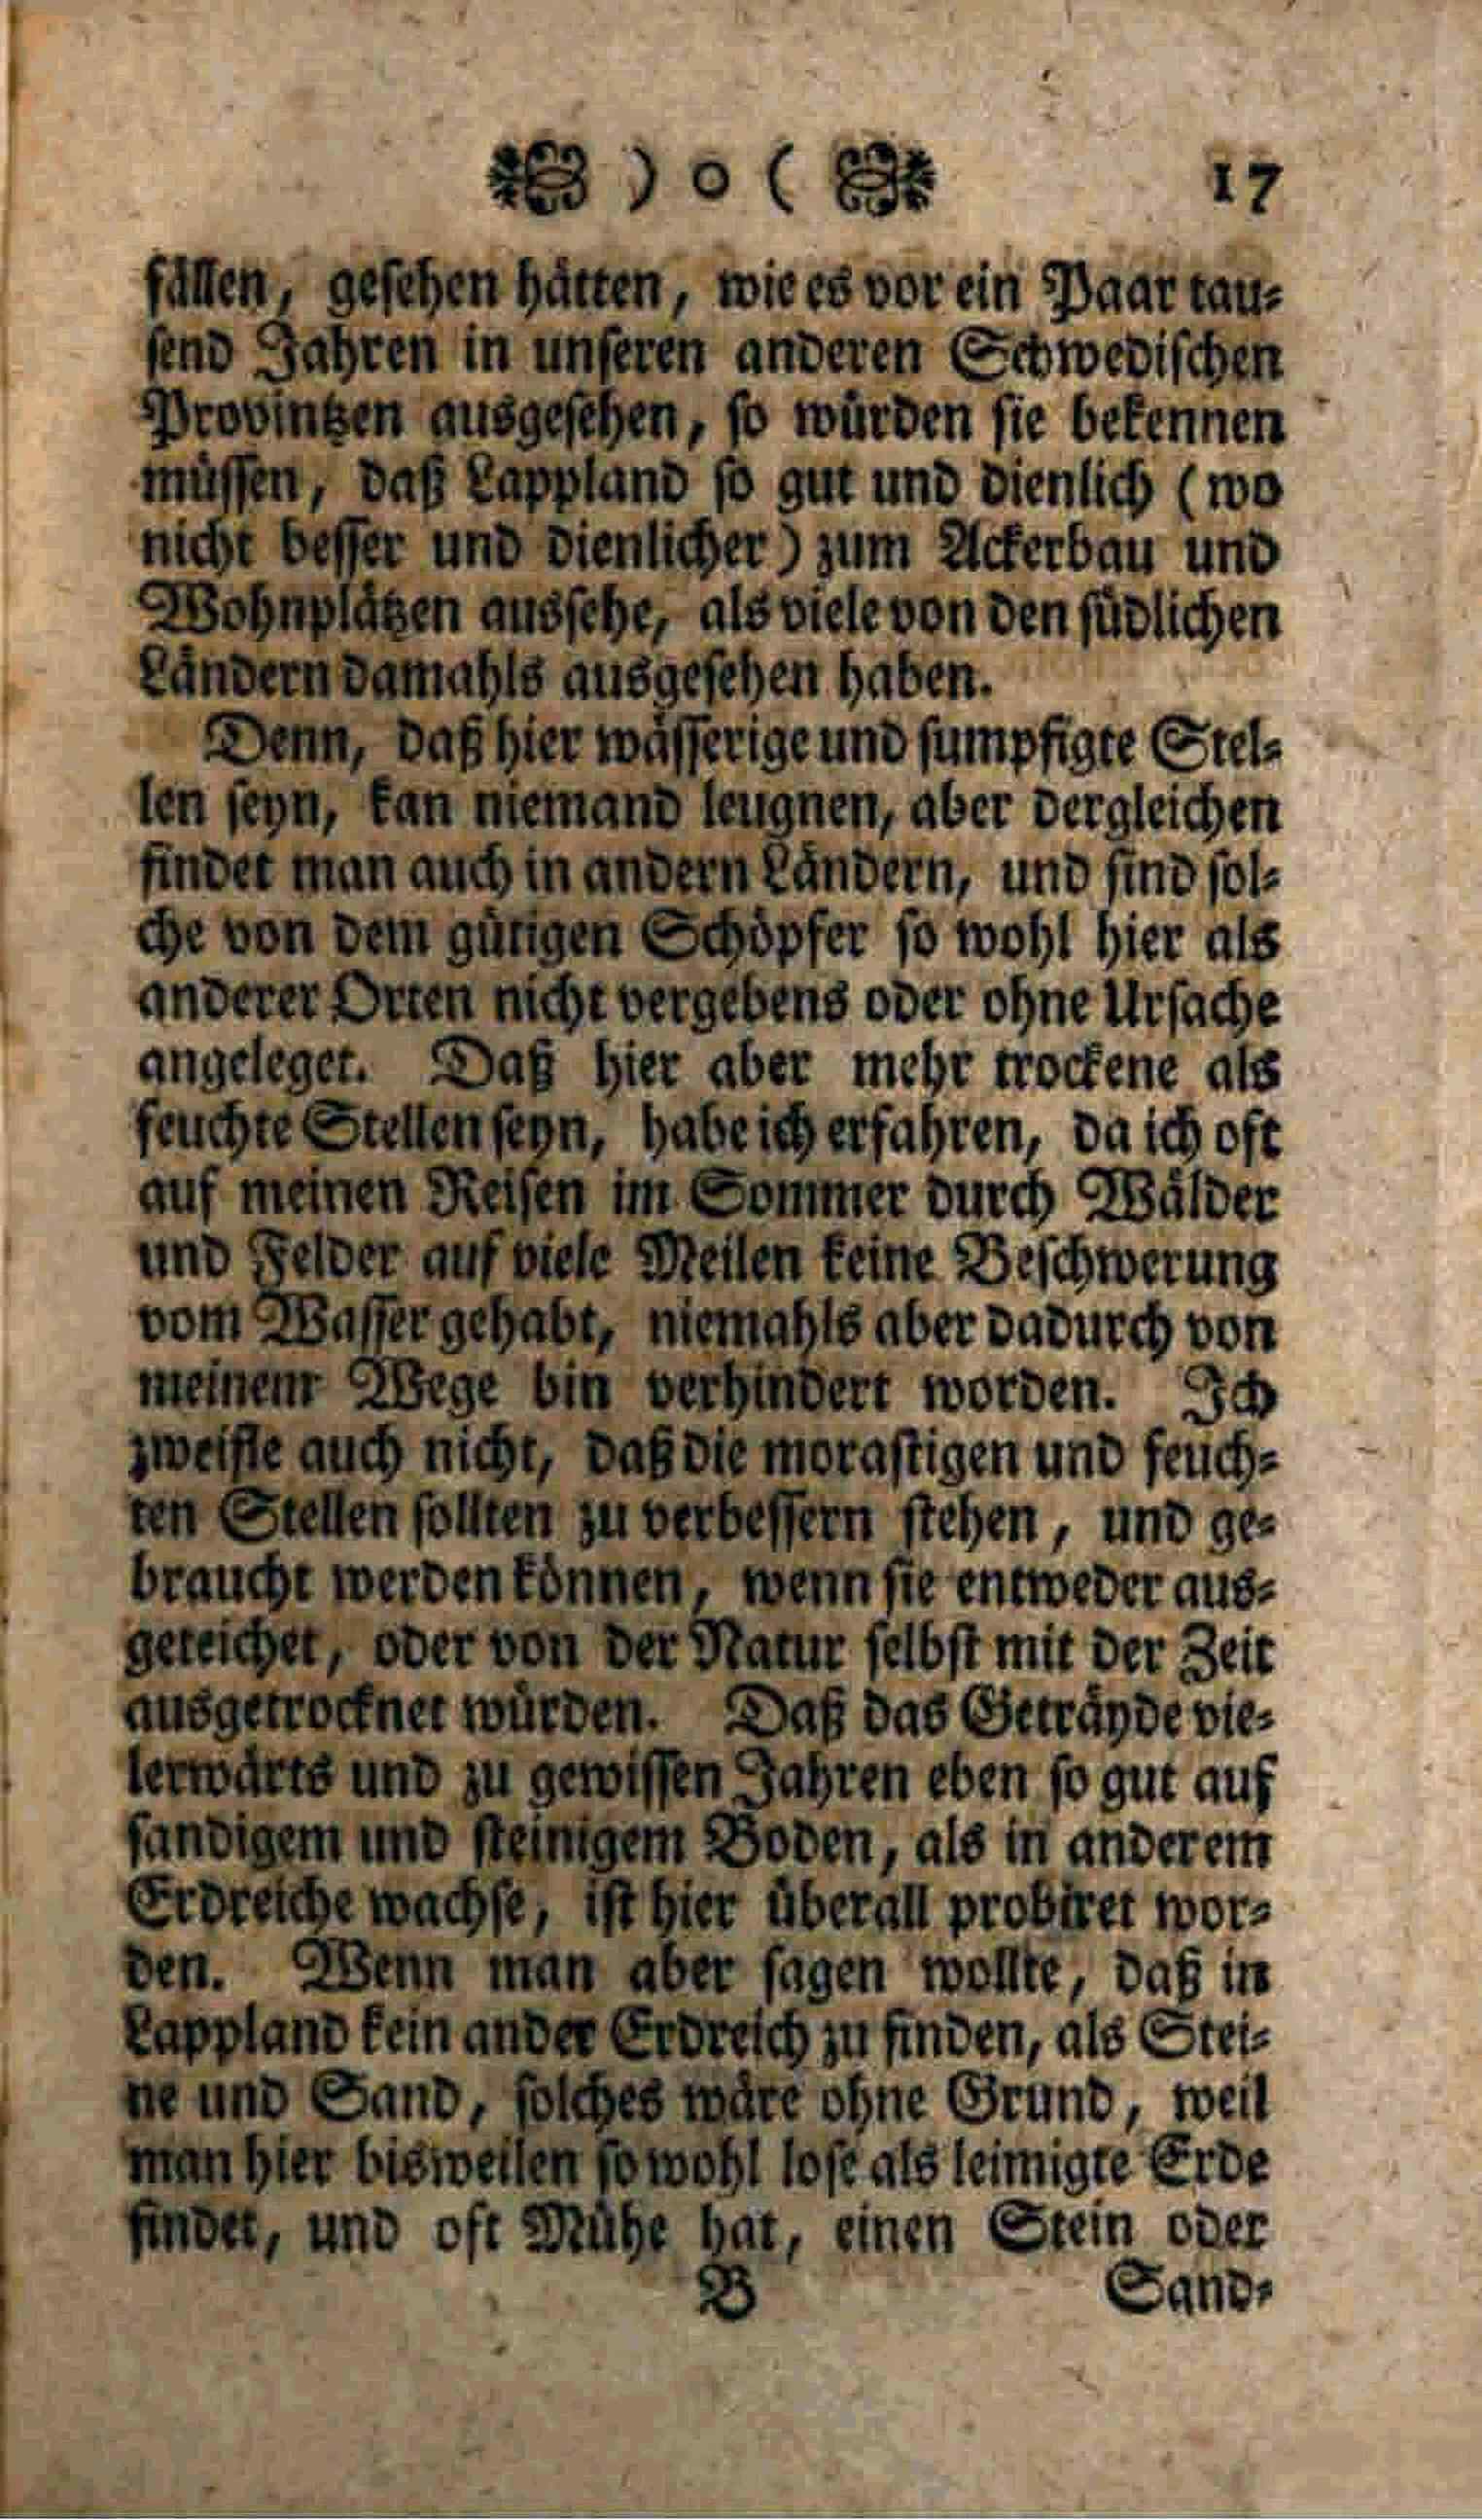 ) o ( 17
fällen, gesehen hätten, wie es vor ein Paar tau-
send Jahren in unseren anderen Schwedischen
Provintzen ausgesehen, so würden sie bekennen
müssen, daß Lappland so gut und dienlich (wo
nicht besser und dienlicher) zum Ackerbau und
Wohnplätzen aussehe, als viele von den südlichen
Ländern damahls ausgesehen haben.
Denn, daß hier wässerige und sumpfigte Stel-
len seyn, kan niemand leugnen, aber dergleichen
findet man auch in andern Ländern, und sind sol-
che von dem gütigen Schöpfer so wohl hier als
anderer Orten nicht vergebens oder ohne Ursache
angeleget. Daß hier aber mehr trockene als
feuchte Stellen seyn, habe ich erfahren, da ich oft
auf meinen Reisen im Sommer durch Wälder
und Felder auf viele Meilen keine Beschwerung
vom Wasser gehabt, niemahls aber dadurch von
meinem Wege bin verhindert worden. Ich
zweifle auch nicht, daß die morastigen und feuch-
ten Stellen sollten zu verbessern stehen, und ge-
braucht werden können, wenn sie entweder aus-
geteichet, oder von der Natur selbst mit der Zeit
ausgetrocknet würden. Daß das Geträyde vie-
lerwärts und zu gewissen Jahren eben so gut auf
sandigem und steinigem Boden, als in anderem
Erdreiche wachse, ist hier überall probiret wor-
den. Wenn man aber sagen wollte, daß in
Lappland kein ander Erdreich zu finden, als Stei-
ne und Sand, solches wäre ohne Grund, weil
man hier bisweilen so wohl lose als leimigte Erde
findet, und oft Mühe hat, einen Stein oder
B Sand-